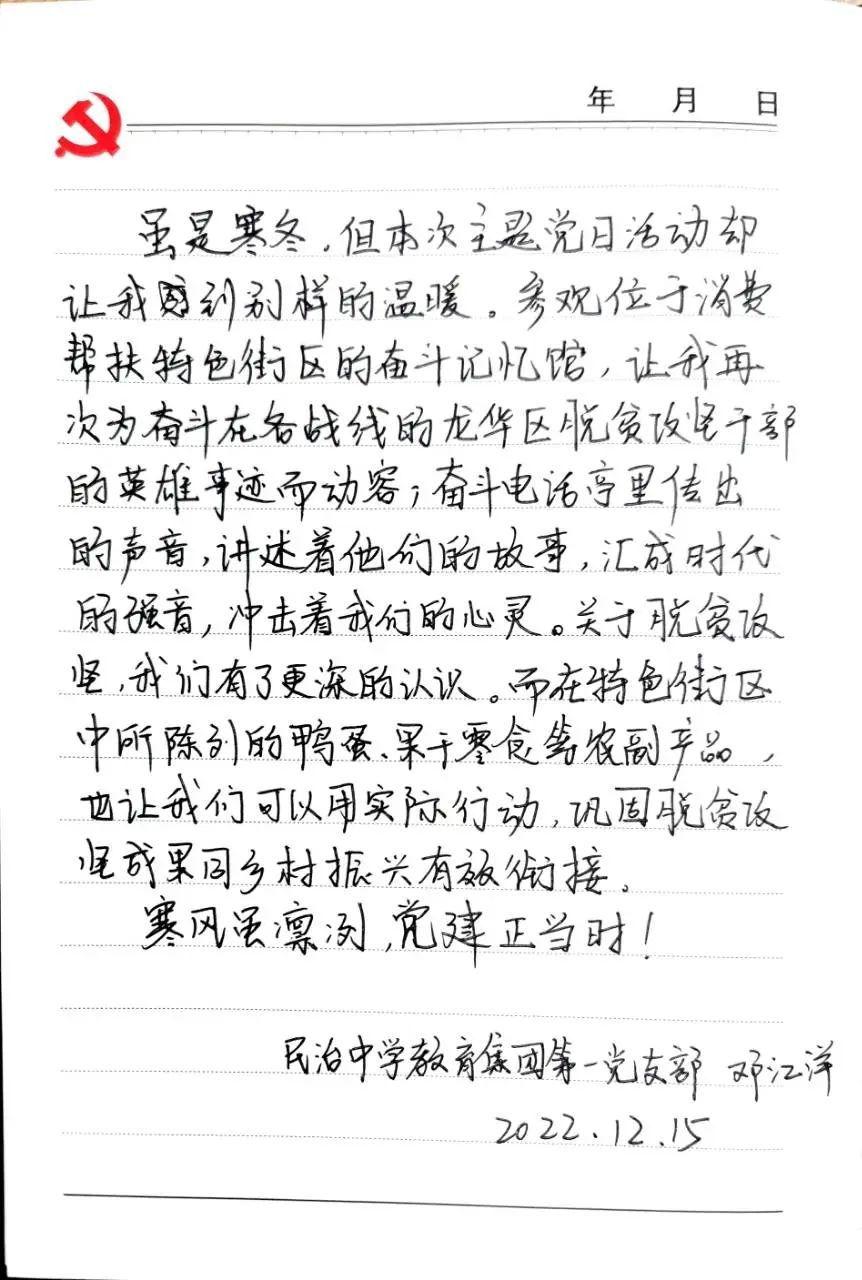 年 月 日
虽是寒冬，但本次主题党日活动却
让我感到别样的温暖。参观位于消费
帮扶特色街区的奋斗记忆馆，让我再
次为奋斗在各战线的龙华区脱贫攻坚干部
的英雄事迹而动容；奋斗电话亭里传出
的声音，讲述着他们的故事，汇成时代
的强音，冲击着我们的心灵。关于脱贫攻
坚，我们有了更深的认识。而在特色街区
中所陈列的鸭蛋、果干零食等农副产品，
也让我们可以用实际行动，巩固脱贫攻
坚成果同乡村振兴有效衔接。
寒风虽凛冽，党建正当时！
民治中学教育集团第一党支部 邓江洋
2022.12.15